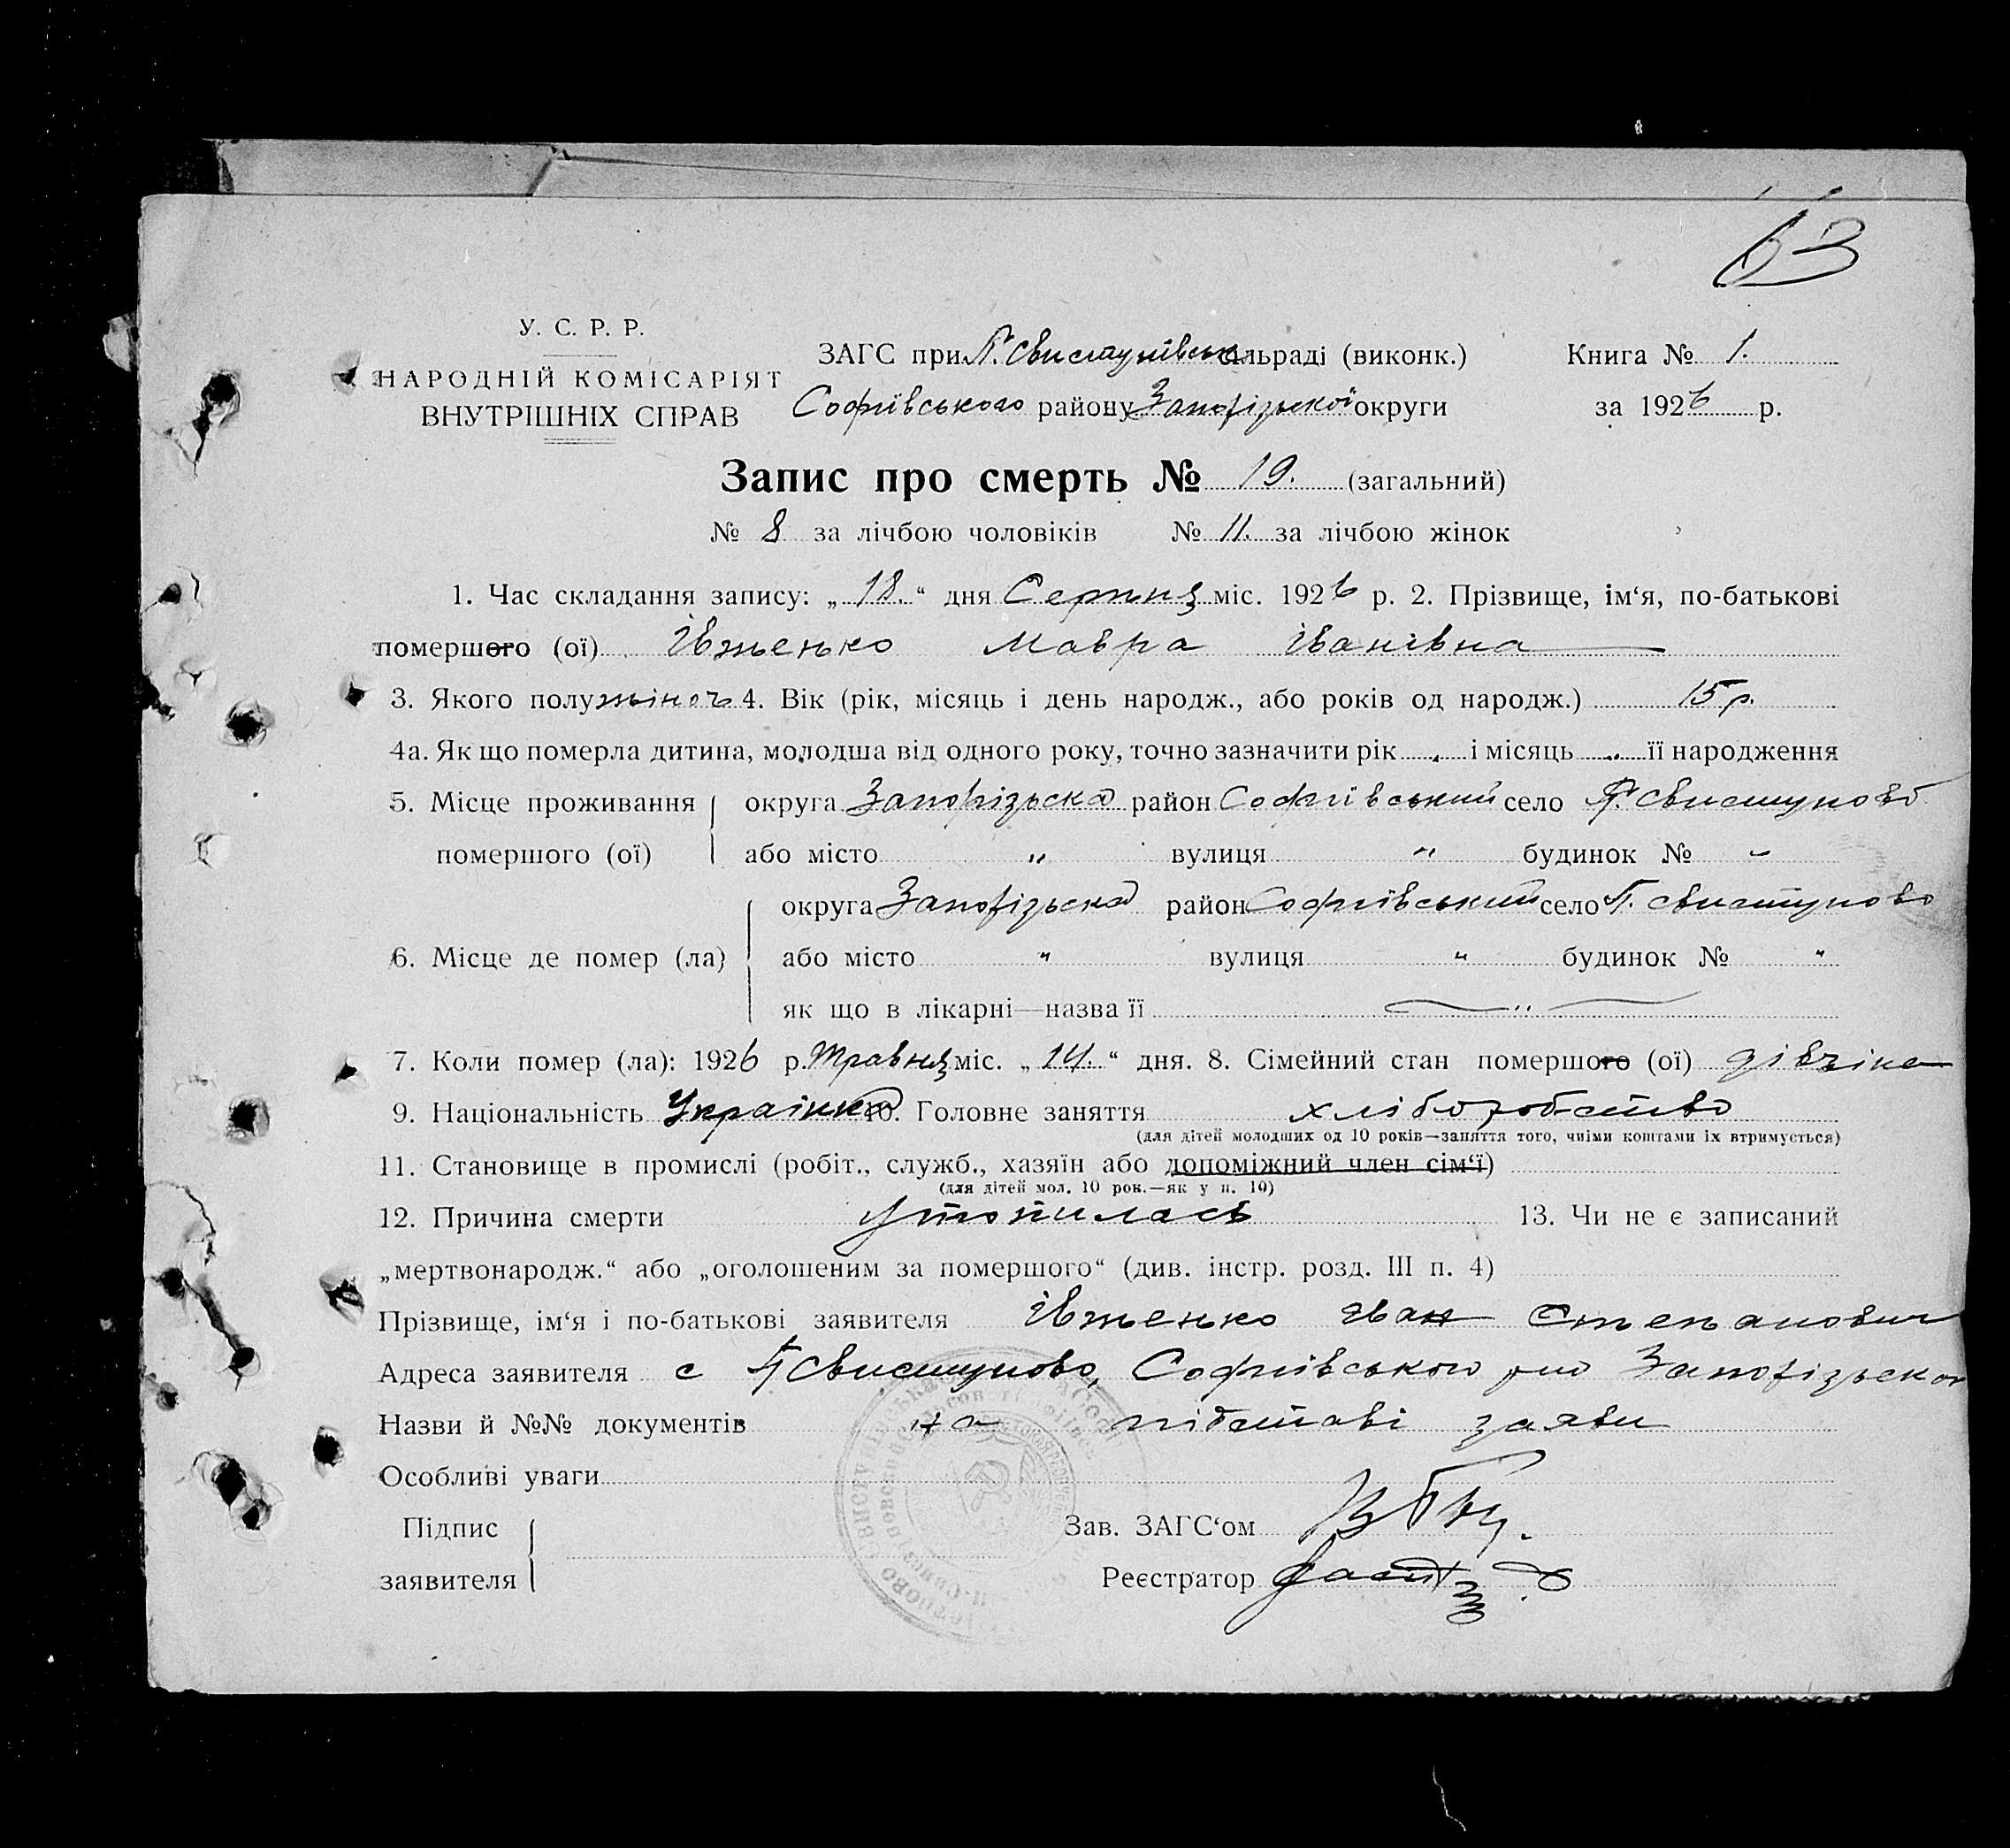 63
У. С. Р. Р.
НАРОДНІЙ КОМІСАРІЯТ
ВНУТРІШНІХ СПРАВ
ЗАГС при П. Свистунівськ сільраді (виконк.)
Софіївського району Запорізької округи
Книга № 1.
за 1926 р.
Запис про смерть № 19. (загальний)
№ 8 за лічбою чоловіків № 11. за лічбою жінок
1. Час складання запису: „18.“ дня Серпня міс. 1926 р. 2. Прізвище, ім‘я, по-батькові
помершого (ої) Івженко Мавра Іванівна
3. Якого полу жіноч 4. Вік (рік, місяць і день народж., або років од народж.) 15 р.
4а. Як що померла дитина, молодша від одного року, точно зазначити рік „ і місяць „ її народження
5. Місце проживання округа Запорізська район Софіївський село П. Свистуново
помершого (ої) або місто „ вулиця „ будинок № „
округа Запорізська район Софіївський село П. Свистуново
6. Місце де помер (ла) або місто „ вулиця „ будинок № „
як що в лікарні—назва її „
7. Коли помер (ла): 1926 р. Травня міс. „14.“ дня. 8. Сімейний стан помершого (ої) дівчіна
9. Національність Українка 10. Головне заняття хліборобство
(для дітей молодших од 10 років—заняття того, чиїми коштами їх втримується)
11. Становище в промислі (робіт., служб., хазяїн або допоміжний член сім‘ї)
(для дітей мол. 10 рок.—як у п. 10)
12. Причина смерти утопилась 13. Чи не є записаний
„мертвонародж.“ або „оголошеним за помершого“ (див. інстр. розд. III п. 4)
Прізвище, ім‘я і по-батькові заявителя Івженко Іван Степанович
Адреса заявителя с П Свистуново, Софіївського р-ну Запорізської
Назви й №№ документів на підставі заяви
Особливі уваги
Підпис
заявителя
Зав. ЗАГС‘ом
Реєстратор